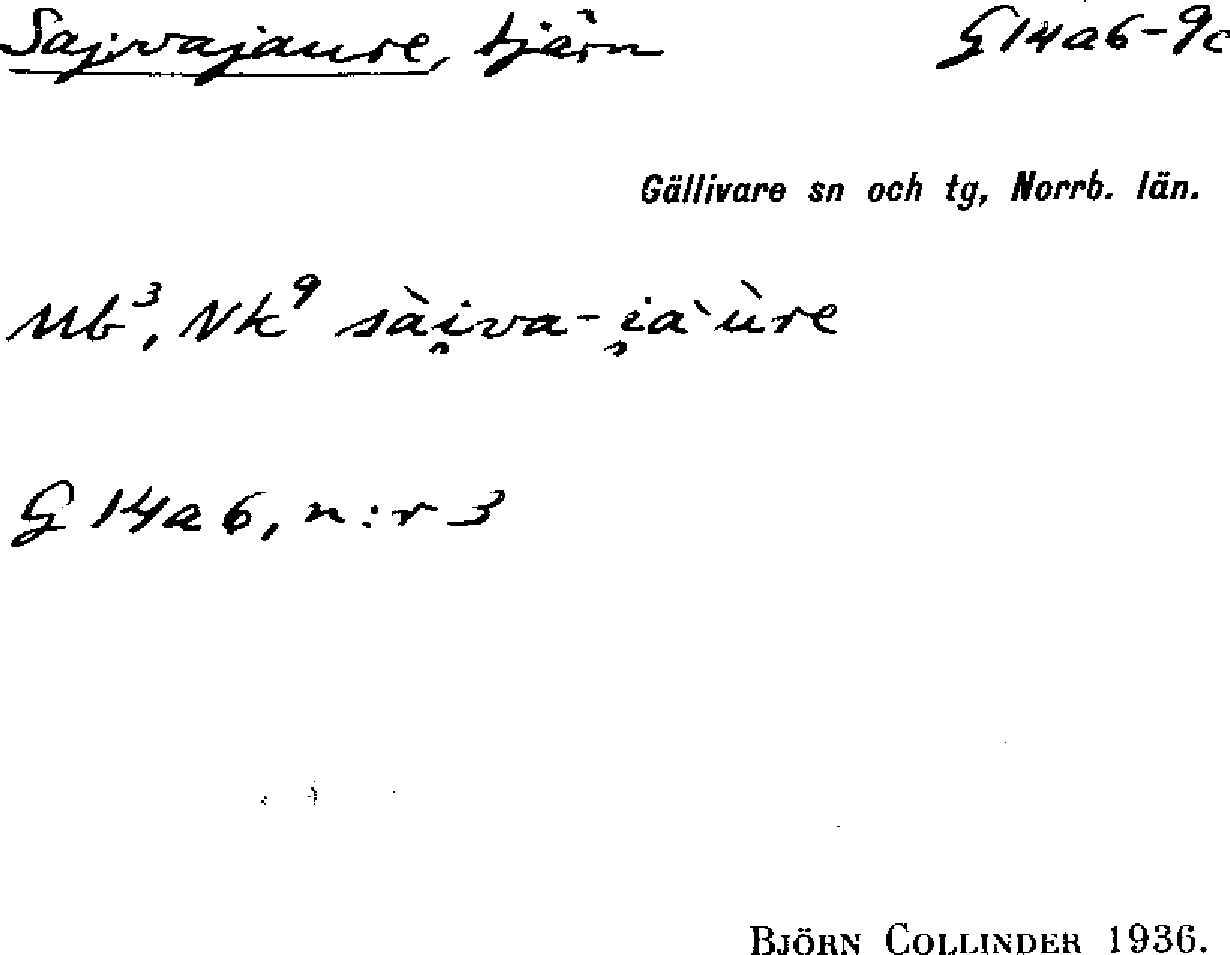 Sajvajaure, tjärn G14a6-9c
Gällivare sn och tg, Norrb. län.
Mb³, Nk⁹ sài̯va-i̯a`ùre
G 14a6, n:r 3
BJÖRN COLLINDER 1936.